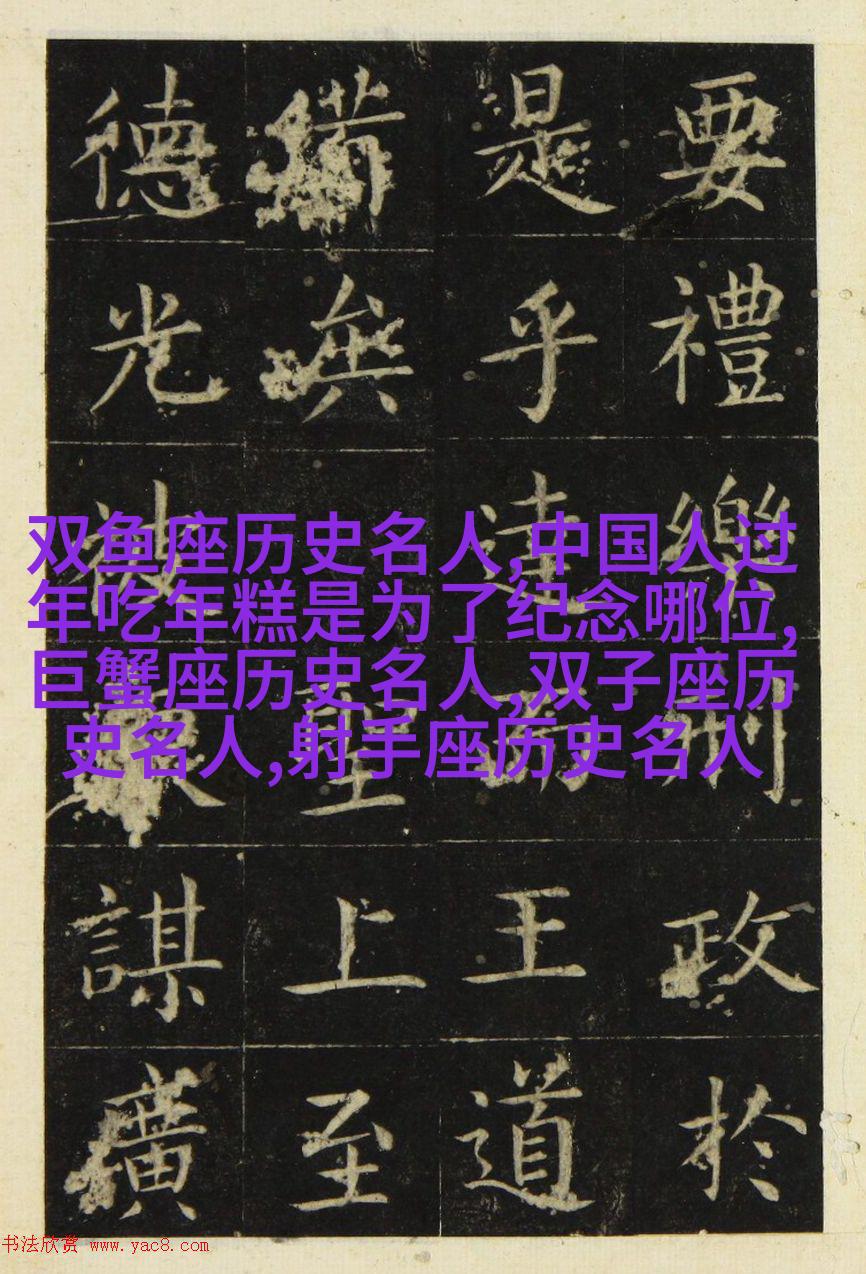 要禮樂刑政於
是乎達王道
備聖上至
德光被謀廣
双鱼座历史名人,中国人过
年吃年糕是为了纪念哪位,
巨蟹座历史名人,双子座历
史名人,射手座历史名人
书法欣赏 www.yac8.com